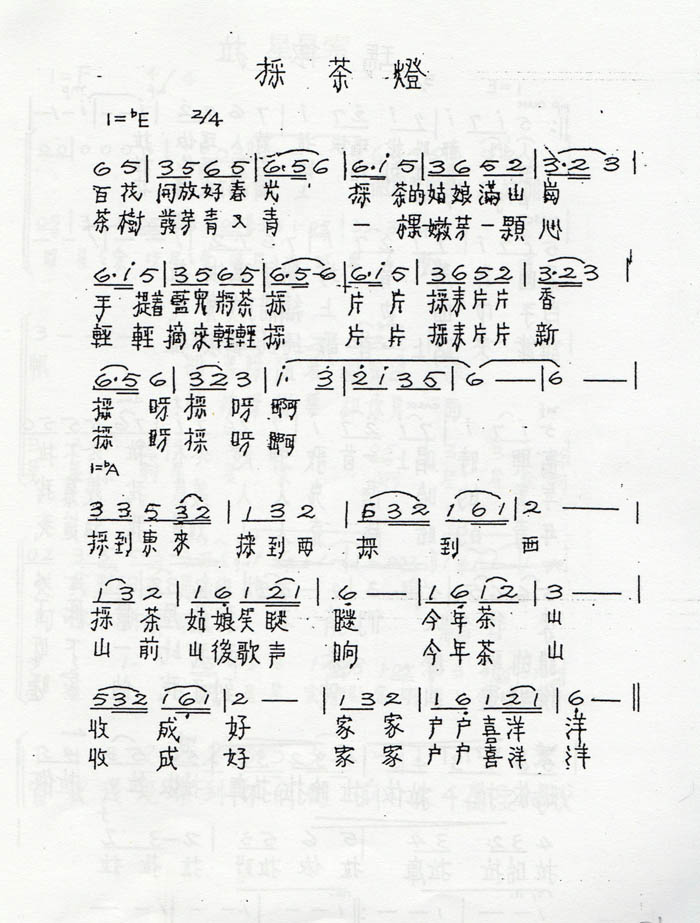 採茶燈
1=♭E 2/4
6 5 | 3 5 6 5 | 6·5 6 | 6·i 5 | 3 6 5 2 | 3·2 3 |
百花開放好春光 採茶的姑娘滿山崗
茶樹發芽青又青 一棵嫩芽一顆心
6·i 5 | 3 5 6 5 | 6·5 6 | 6·i 5 | 3 6 5 2 | 3·2 3 |
手提着籃兒將茶採 片片採來片片香
輕輕摘來輕輕採 片片採來片片新
6·5 6 | 3 2 3 | i· 3 | 2 i 3 5 | 6 — | 6 — |
採呀採呀啊
採呀採呀啊
1=♭A
3 3 5 3 2 | 1 3 2 | 5 3 2 1 6 1 | 2 —
採到東來採到西採到西
1 3 2 | 1 6 1 2 1 | 6 — | 1 6 1 2 | 3 —
採茶姑娘笑瞇瞇今年茶山
山前山後歌声响今年茶山
5 3 2 1 6 1 | 2 — | 1 3 2 | 1 6 1 2 1 | 6 — ‖
收成好家家户户喜洋洋
收成好家家户户喜洋洋